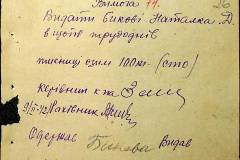 Вимога 77. 26
Видати Биковій Наталка Д.
в щот трудоднів
пшениці озим 100кг (сто)
Керівник к-па
9/II-42 Рахівник
Одержав Бикова Видав